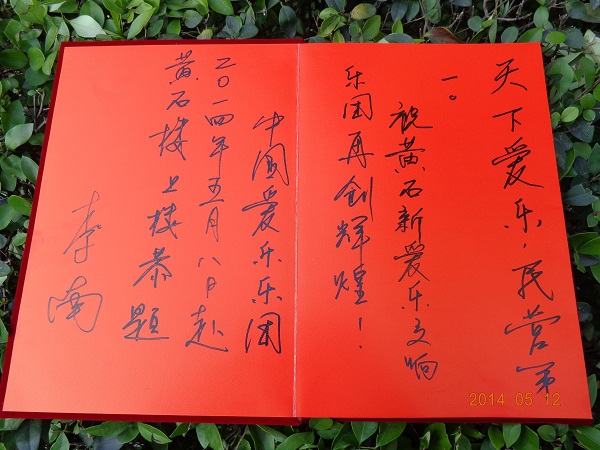 天下爱乐，民营第
一。
祝黄石新爱乐交响
乐团再创辉煌！
中国爱乐乐团
二〇一四年五月八日赴
黄石楼上楼恭题
李南
2014 05 12